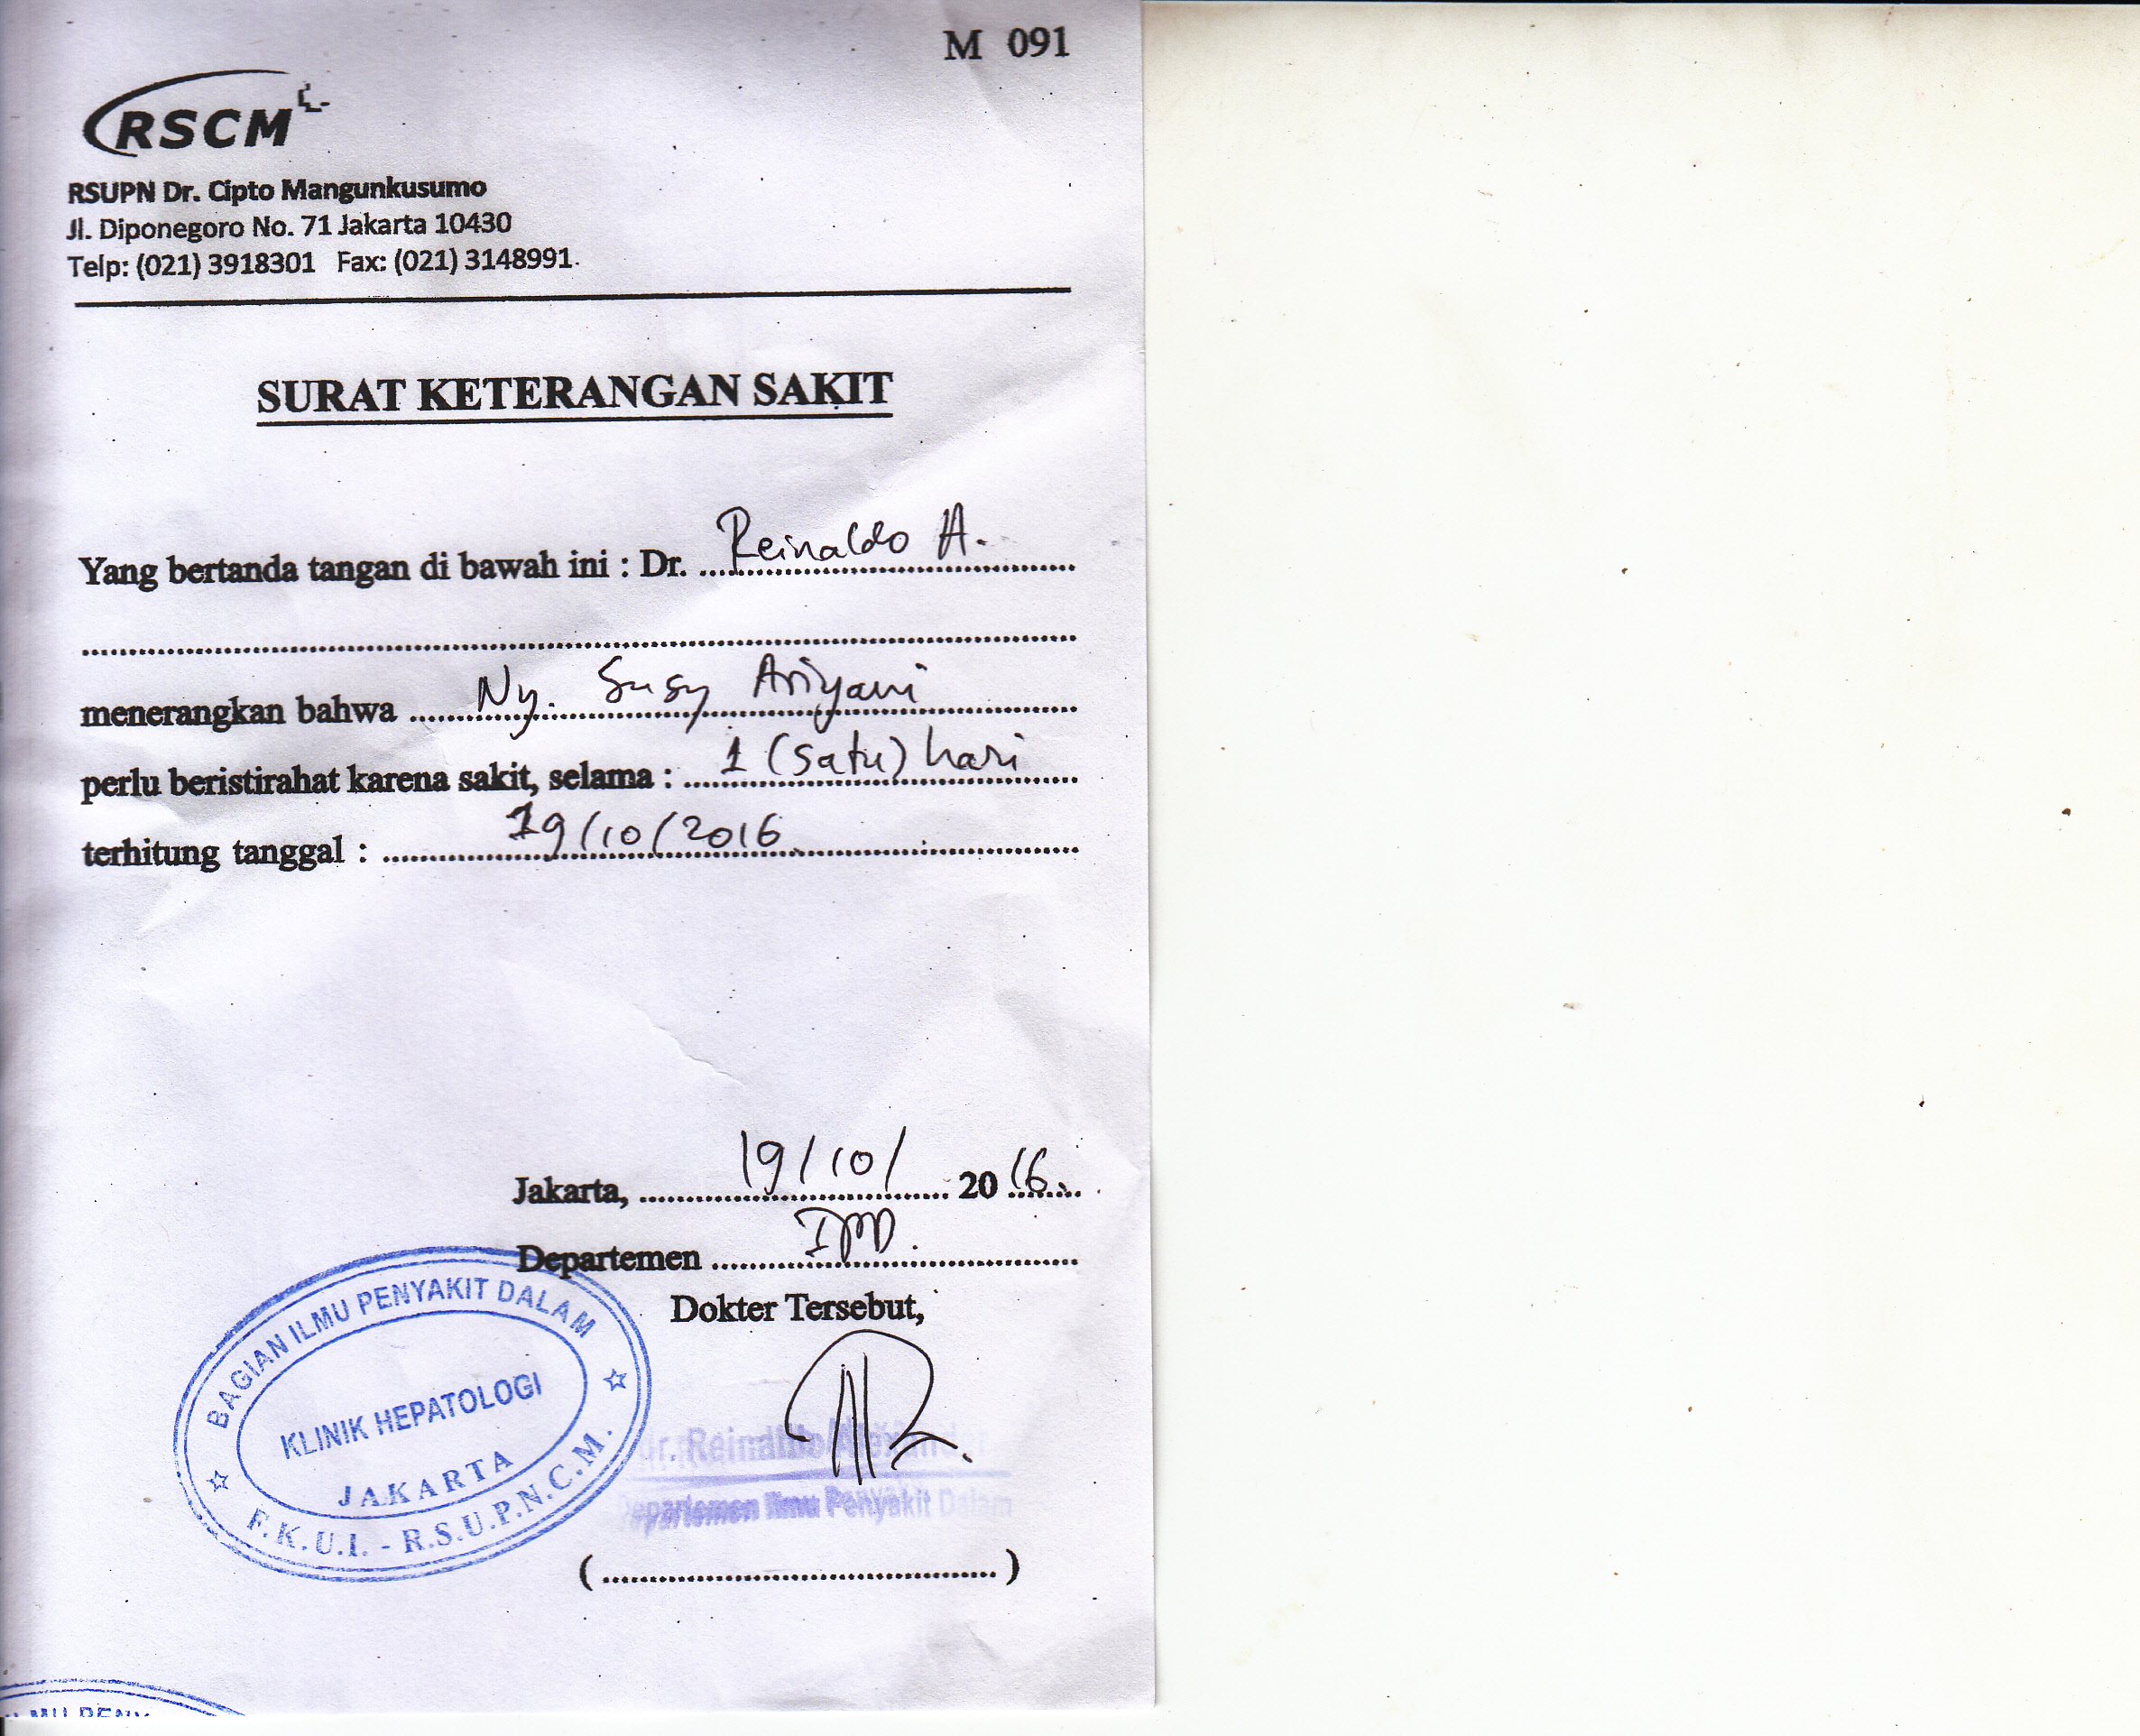 M 091
RSCM
RSUPN Dr. Cipto Mangunkusumo
Jl. Diponegoro No. 71 Jakarta 10430
Telp: (021) 3918301 Fax: (021) 3148991
SURAT KETERANGAN SAKIT
Yang bertanda tangan di bawah ini : Dr. Reinaldo A.
menerangkan bahwa Ny. Susy Ariyani
perlu beristirahat karena sakit, selama : 1 (satu) hari
terhitung tanggal : 19/10/2016
Jakarta, 19/10/ 2016.
Departemen IPD.
Dokter Tersebut,
BAGIAN ILMU PENYAKIT DALAM
KLINIK HEPATOLOGI
JAKARTA
F.K.U.I. - R.S.U.P.N.C.M.
dr. Reinaldo Alexander
Departemen Ilmu Penyakit Dalam
(.............................................)